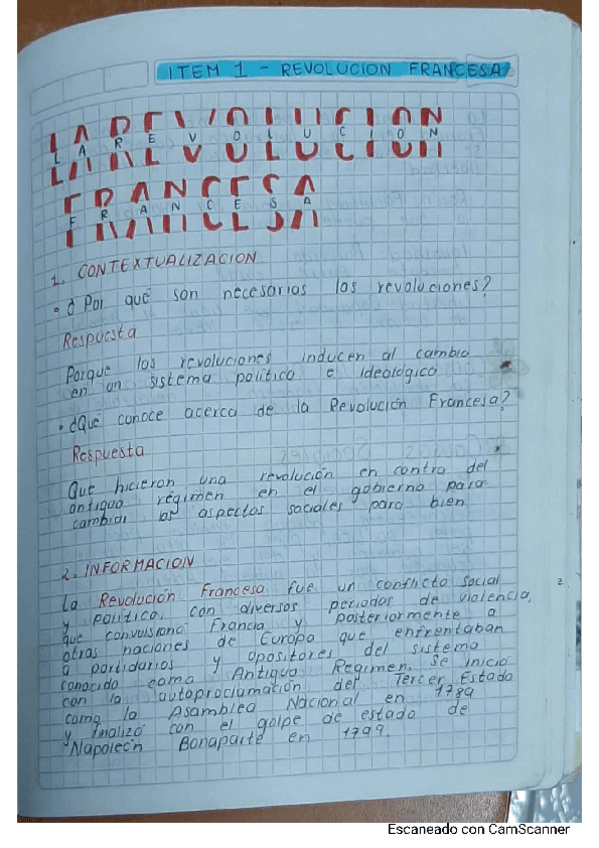 ITEM 1 - REVOLUCION FRANCESA
LA REVOLUCION
FRANCESA
1. CONTEXTUALIZACION
• ¿Por qué son necesarias las revoluciones?
Respuesta
Porque las revoluciones inducen al cambio
en un sistema político e Ideológico
• ¿Qué conoce acerca de la Revolución Francesa?
Respuesta
Que hicieron una revolución en contra del
antiguo régimen en el gobierno para
cambiar los aspectos sociales para bien
2. INFORMACION
La Revolución Francesa fue un conflicto social
y político, con diversos periodos de violencia,
que convulsionó Francia y posteriormente a
otras naciones de Europa que enfrentaban
a partidarios y opositores del sistema
conocido como Antiguo Regimen. Se inició
con la autoproclamación del Tercer Estado
como la Asamblea Nacional en 1789
y finalizó con el golpe de estado de
Napoleón Bonaparte en 1799.
2
Escaneado con CamScanner